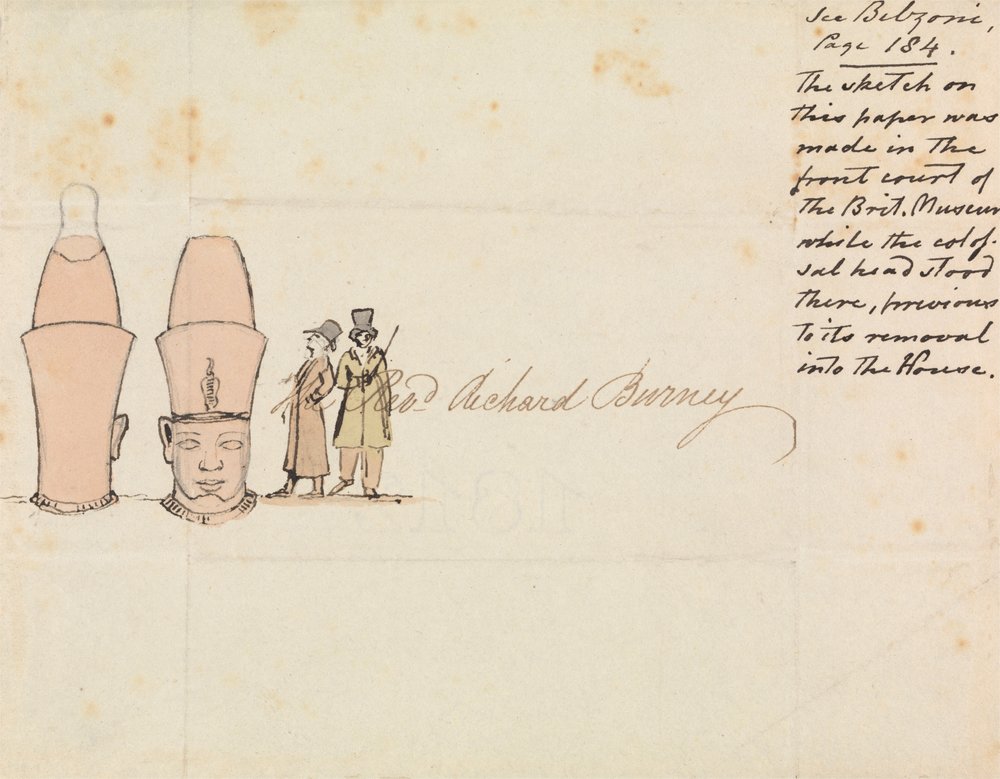 see Belzoni,
Page 184.
The sketch on
this paper was
made in the
front court of
the Brit. Museum
while the colos-
sal head stood
there, previous
to its removal
into the House.
The Revd Richard Burney